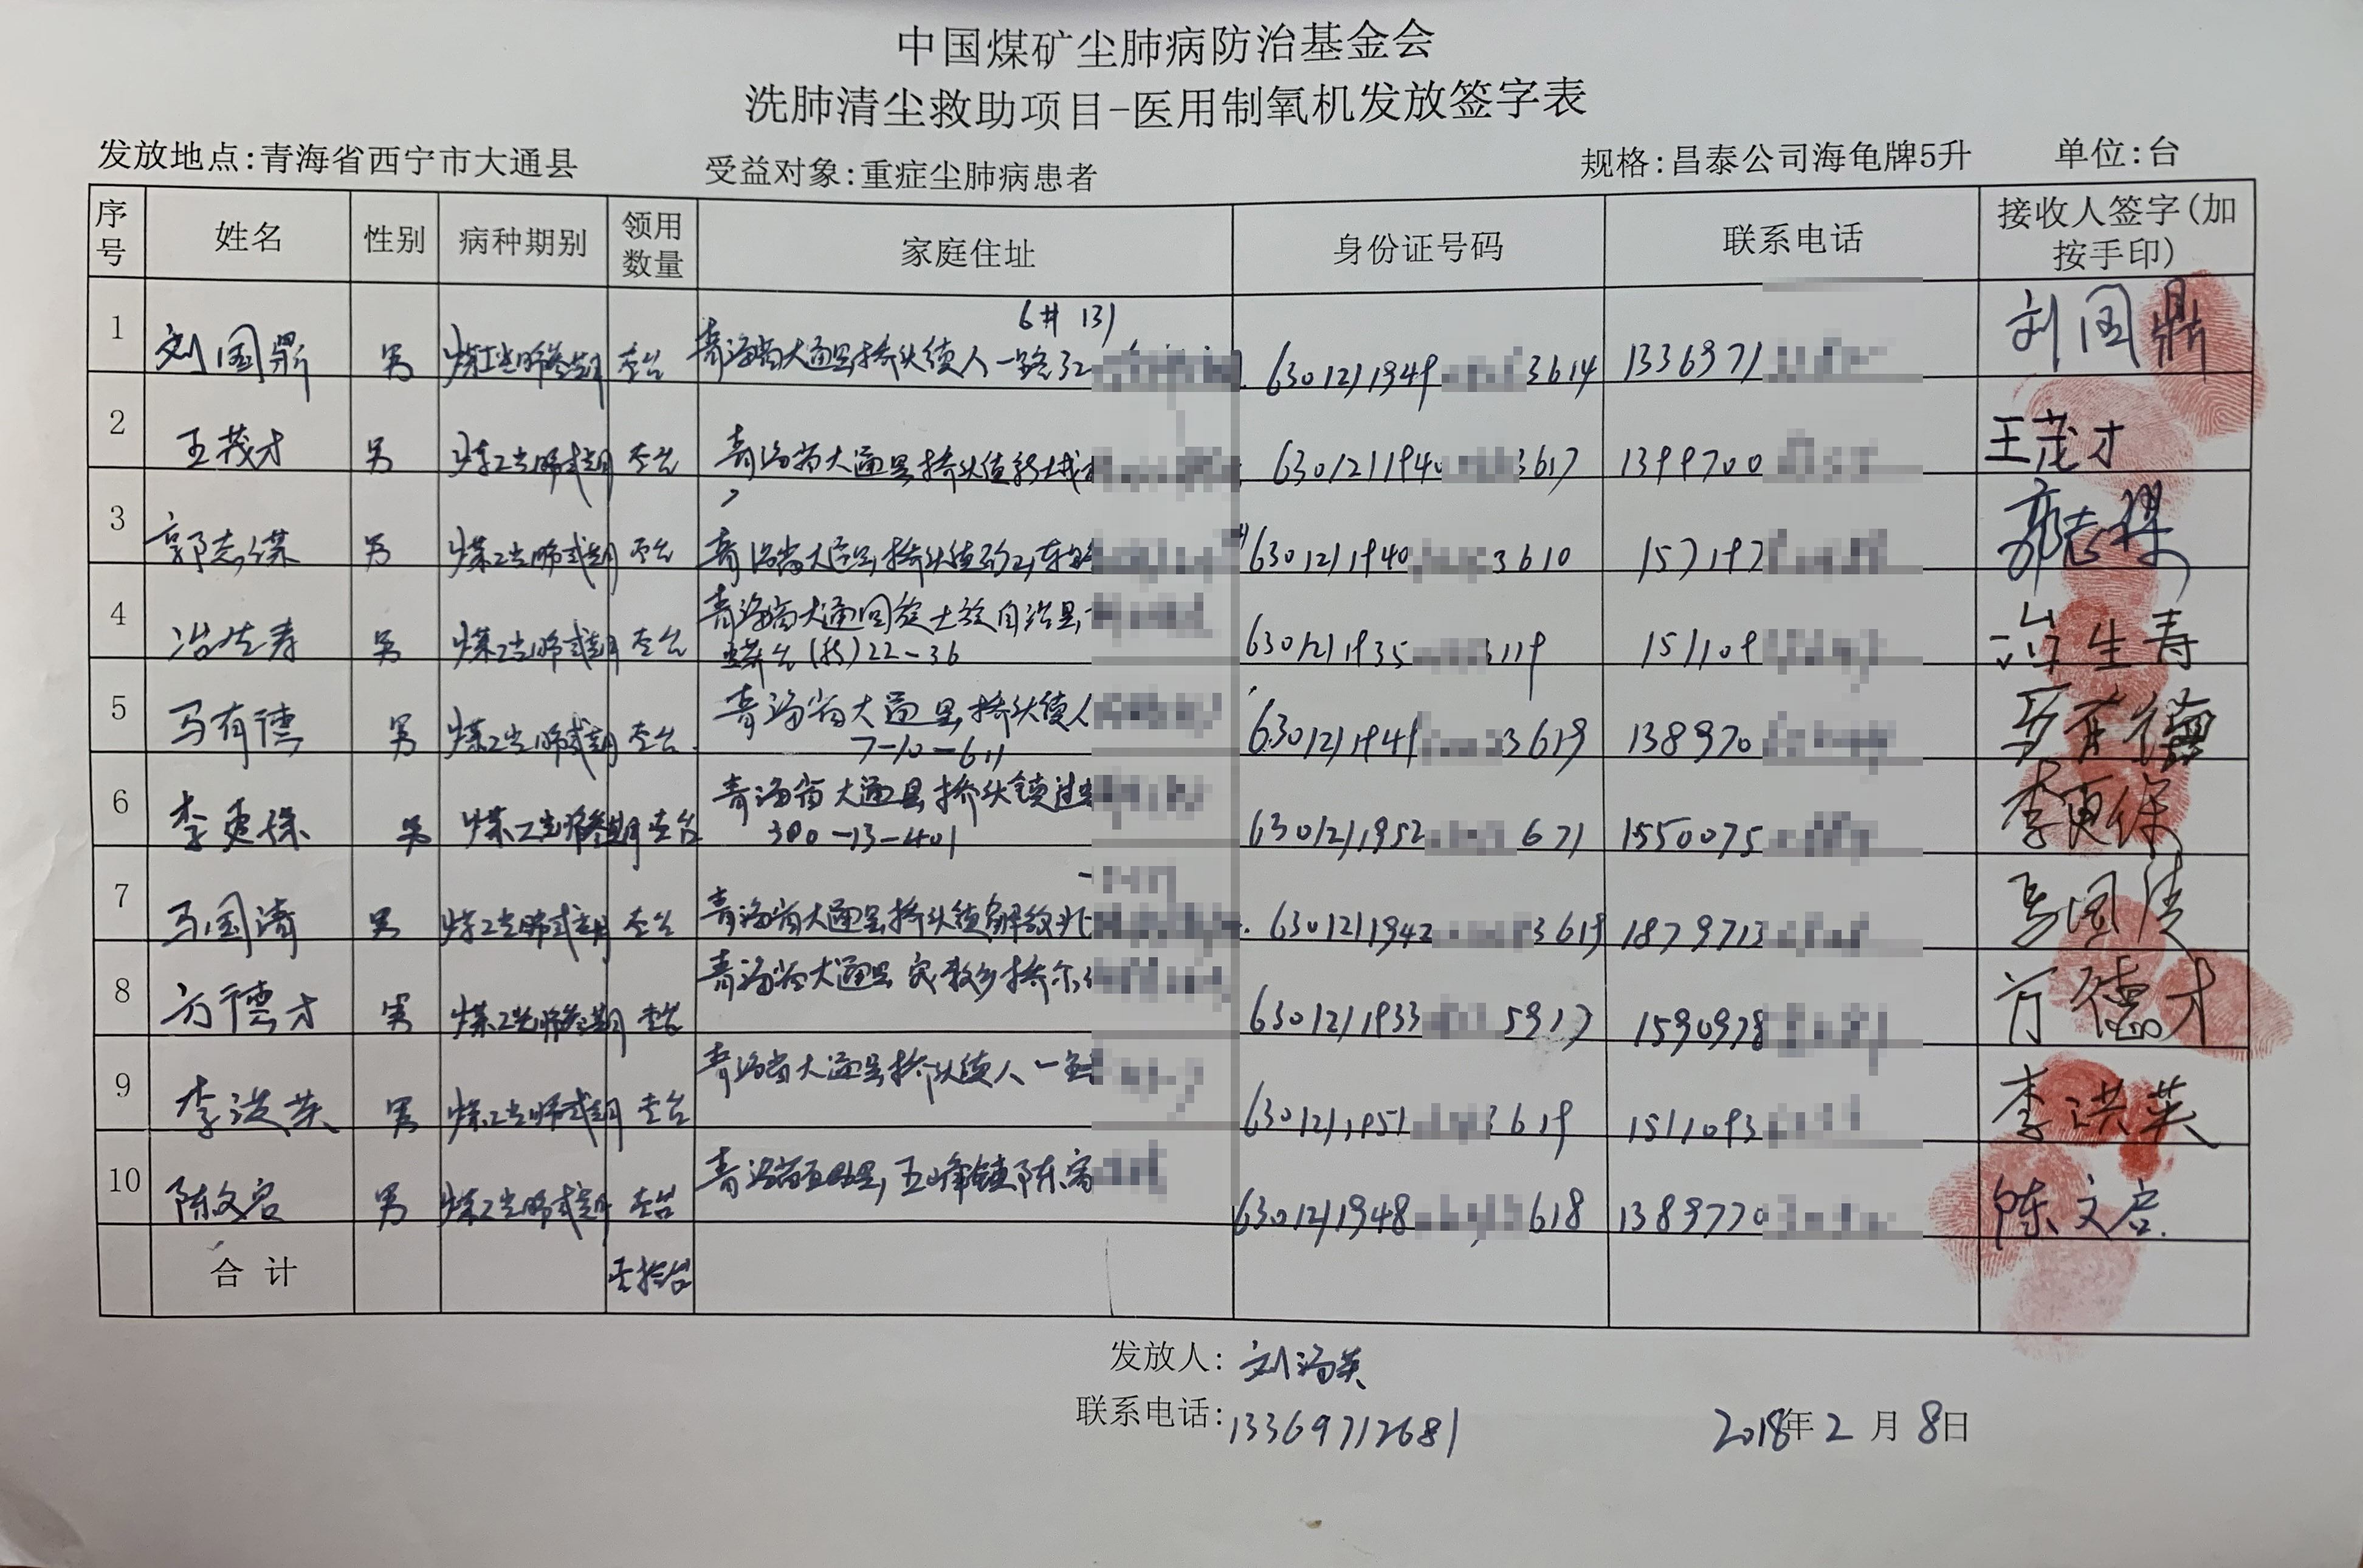 中国煤矿尘肺病防治基金会
洗肺清尘救助项目-医用制氧机发放签字表
发放地点:青海省西宁市大通县 受益对象:重症尘肺病患者 规格:昌泰公司海龟牌5升 单位:台
序号 姓名 性别 病种期别 领用数量 家庭住址 身份证号码 联系电话 接收人签字(加按手印)
6# 131
1 刘国鼎 男 煤工尘肺叁期 壹台 青海省大通县桥头镇人一路32 6301211949 3614 1336971 刘国鼎
2 王茂才 男 煤工尘肺贰期 壹台 青海省大通县桥头镇 6301211940 3617 1399700 王茂才
3 郭志谋 男 煤工尘肺贰期 壹台 青海省大通县桥头镇 6301211940 3610 157197 郭志谋
4 冶生寿 男 煤工尘肺贰期 壹台 青海省大通回族土族自治县 6301211935 3119 151109 冶生寿
22-36
5 马有德 男 煤工尘肺贰期 壹台 青海省大通县桥头镇人 6301211949 3619 138970 马有德
7-10-611
6 李更保 男 煤工尘肺叁期 壹台 青海省大通县桥头镇 6301211952 671 1550075 李更保
300-13-401
7 马国清 男 煤工尘肺贰期 壹台 青海省大通县桥头镇解放北 6301211942 3619 1879713 马国清
8 方德才 男 煤工尘肺叁期 壹台 青海省大通县 桥尔 6301211933 5917 1590978 方德才
9 李洪英 男 煤工尘肺贰期 壹台 青海省大通县桥头镇人一路 6301211951 3619 1511093 李洪英
10 陈文启 男 煤工尘肺贰期 壹台 青海省互助县五峰镇陈家 6301211948 618 1389770 陈文启
合计 壹拾台
发放人: 刘海英
联系电话: 13369712681 2018年2月8日